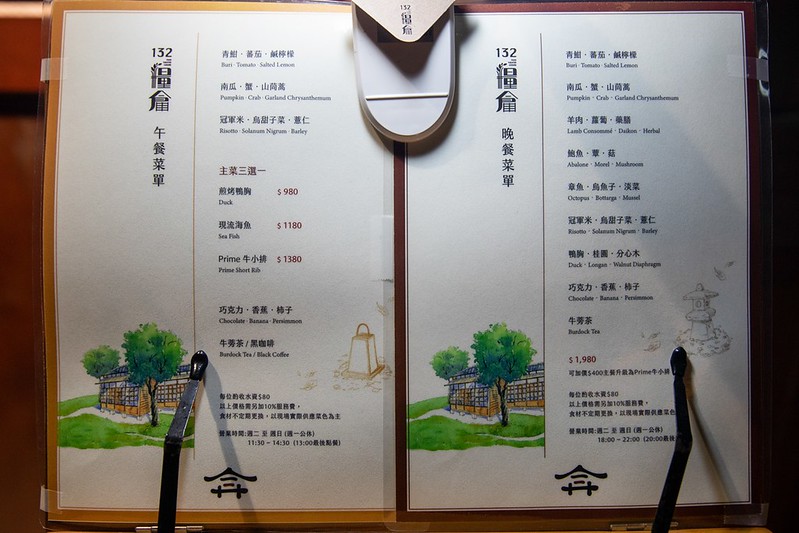 132
糧倉
132
糧倉
午餐菜單
青魽·蕃茄·鹹檸檬
Buri · Tomato · Salted Lemon
南瓜·蟹·山茼蒿
Pumpkin · Crab · Garland Chrysanthemum
冠軍米·烏甜子菜·薏仁
Risotto · Solanum Nigrum · Barley
主菜三選一
煎烤鴨胸 $ 980
Duck
現流海魚 $ 1180
Sea Fish
Prime 牛小排 $ 1380
Prime Short Rib
巧克力·香蕉·柿子
Chocolate · Banana · Persimmon
牛蒡茶 / 黑咖啡
Burdock Tea / Black Coffee
每位酌收水資$80
以上價格需另加10%服務費,
食材不定期更換,以現場實際供應菜色為主
營業時間:週二 至 週日 (週一公休)
11:30 ~ 14:30 (13:00最後點餐)
132
糧倉
晚餐菜單
青魽·蕃茄·鹹檸檬
Buri · Tomato · Salted Lemon
南瓜·蟹·山茼蒿
Pumpkin · Crab · Garland Chrysanthemum
羊肉·蘿蔔·藥膳
Lamb Consommé · Daikon · Herbal
鮑魚·蕈·菇
Abalone · Morel · Mushroom
章魚·烏魚子·淡菜
Octopus · Bottarga · Mussel
冠軍米·烏甜子菜·薏仁
Risotto · Solanum Nigrum · Barley
鴨胸·桂圓·分心木
Duck · Longan · Walnut Diaphragm
巧克力·香蕉·柿子
Chocolate · Banana · Persimmon
牛蒡茶
Burdock Tea
$ 1,980
可加價$400主餐升級為Prime牛小排
每位酌收水資$80
以上價格需另加10%服務費,
食材不定期更換,以現場實際供應菜色
營業時間:週二 至 週日 (週一公休)
18:00 ~ 22:00 (20:00最後